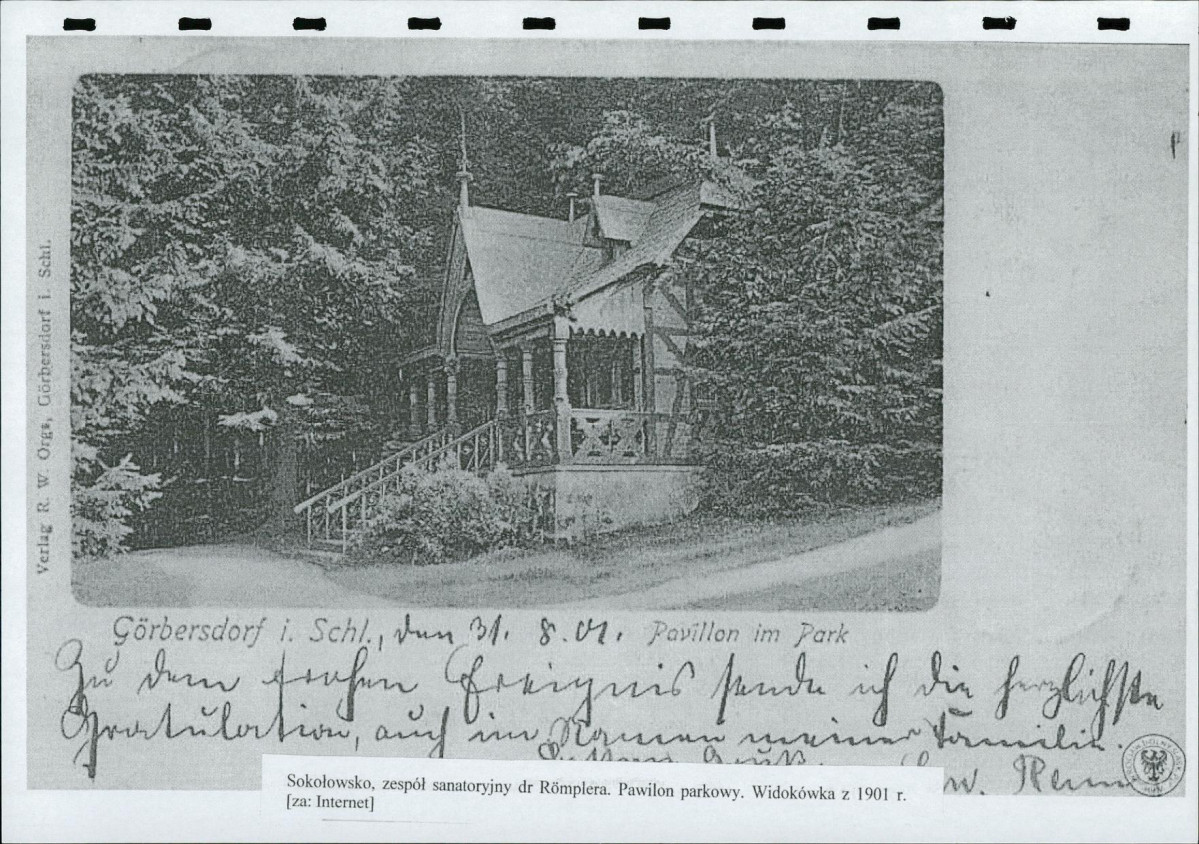 Verlag R. W. Orgs, Görbersdorf i. Schl.
Görbersdorf i. Schl., den 31. 8. 01. Pavillon im Park
Zu dem frohen Ereignis sende ich die herzlichste
Gratulation, auch im Namen meiner Familie.
Gruß
Sokołowsko, zespół sanatoryjny dr Römplera. Pawilon parkowy. Widokówka z 1901 r.
[za: Internet]